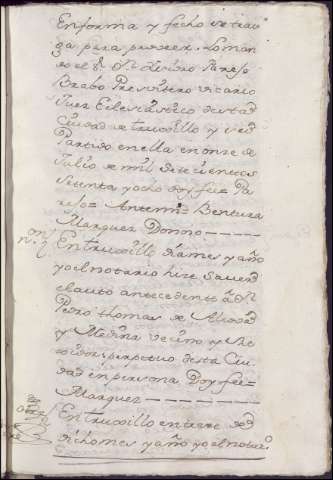 En forma y fecho se trai
ga para proveer. Lo man
do el Sr. Dn. Isidro Paredes
Brabo Presvitero vicario
Juez Eclesiastico desta d
Ciudad de truxillo y su
Partido en ella en onze de
Julio de mil setecientos
setenta y ocho doy fee = Pa
redes = Antemi = Bentura
Marquez Donoso
En truxillo dia mes y año
yo el notario hize saver el
el auto antecedente a Dn
Pedro thomas de
y Medina vecino y Re
xidor perpetuo desta Ciu
dad en persona Doy fee =
Marquez
En truxillo en treze de
dicho mes y año yo el notar.o